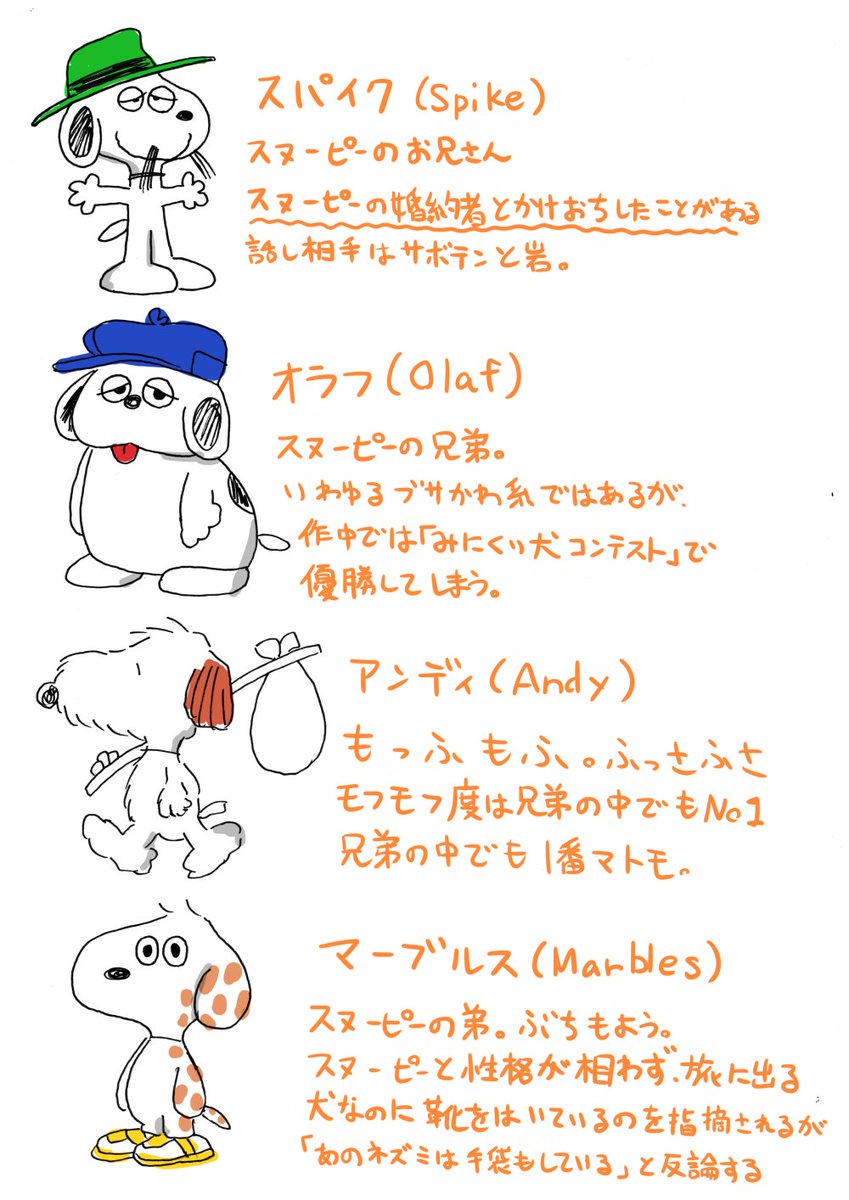 スパイク(Spike)
スヌーピーのお兄さん
スヌーピーの婚約者とかけおちしたことがある
話し相手はサボテンと岩。
オラフ(Olaf)
スヌーピーの兄弟。
いわゆるブサかわ系ではあるが、
作中では「みにくい犬コンテスト」で
優勝してしまう。
アンディ(Andy)
もっふもふ。ふっさふさ
モフモフ度は兄弟の中でもNo1
兄弟の中でも1番マトモ。
マーブルス(Marbles)
スヌーピーの弟。ぶちもよう。
スヌーピーと性格が相わず、旅に出る
犬なのに靴をはいているのを指摘されるが
「あのネズミは手袋もしている」と反論する